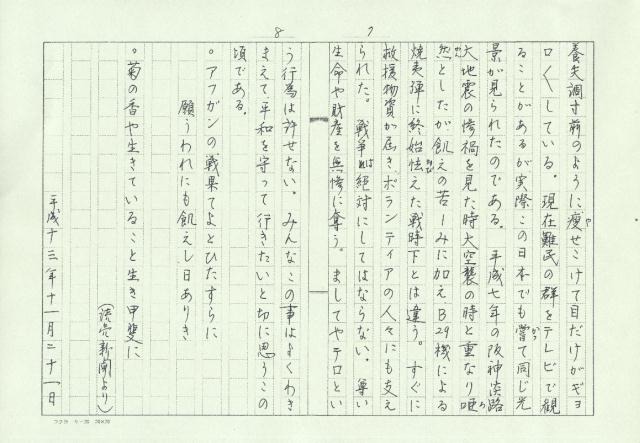 7
養失調寸前のように痩せこけて目だけがギョ
ロくしている。現在難民の群をテレビで観
ることがあるが実際この日本でも嘗て同じ光
景が見られたのである。平成七年の阪神淡路
大地震の惨禍を見た時大空襲の時と重なり唖
然としたが飢えの苦しみに加えB29機による
焼夷弾に終始怯えた戦時下とは違う。すぐに
救援物資が届きボランティアの人々にも支え
られた。戦争は絶対にしてはならない。尊い
生命や財産を無惨に奪う。ましてやテロとい
8
う行為は許せない。みんなこの事はよくわき
まえて平和を守って行きたいと切に思うこの
頃である。
。アフガンの戦果てよとひたすらに
願うわれにも飢えし日ありき
。菊の香や生きていること生き甲斐に
(読売新聞より)
平成十三年十一月二十一日
コクヨ ケ-35 20×20